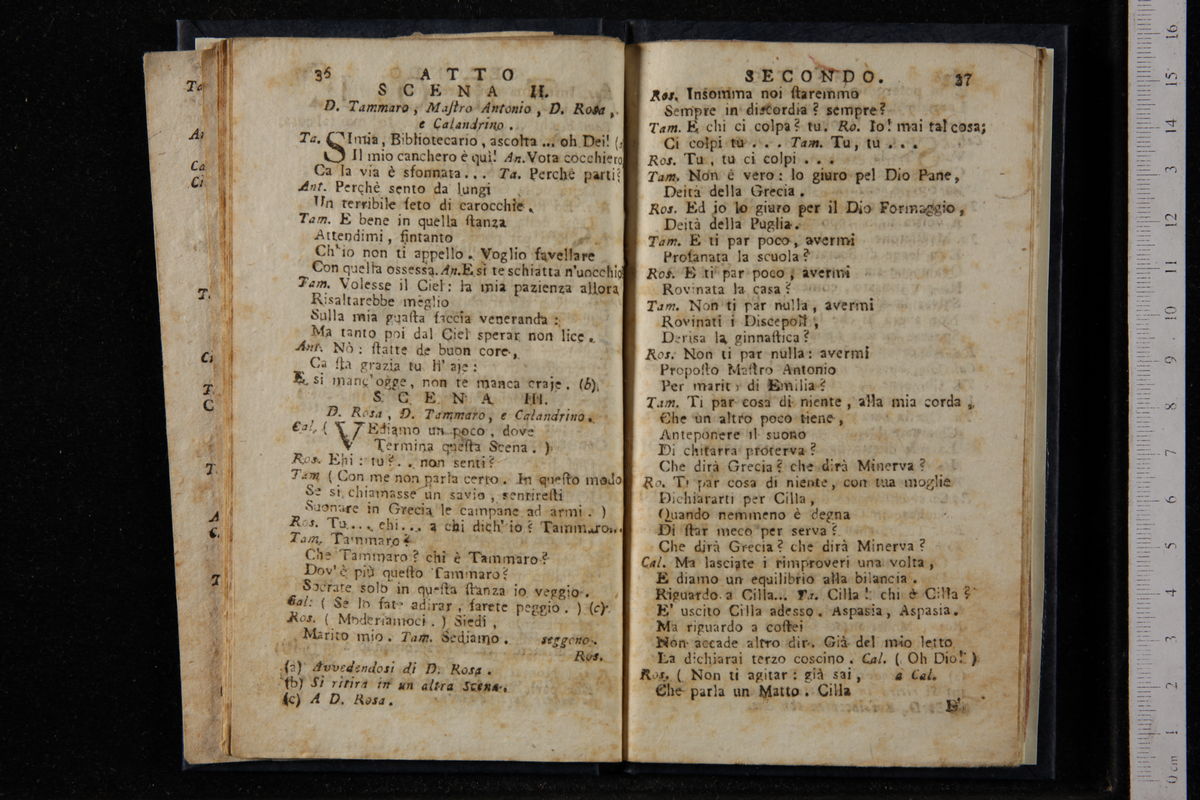 36 ATTO
SCENA II.
D. Tammaro, Maſtro Antonio, D. Roſa,
e Calandrino.
Ta. SImia, Bibliotecario, aſcolta ... oh Dei! (a
Il mio canchero è quì! An. Vota cocchiero
Ca la via è sfonnata... Ta. Perchè parti?
Ant. Perchè sento da lungi
Un terribile feto di carocchie.
Tam. E bene in quella ſtanza
Attendimi, fintanto
Ch'io non ti appello. Voglio favellare
Con queſta osseſſa. An. E si te schiatta n'uocchio?
Tam. Volesse il Ciel: la mia pazienza allora
Risaltarebbe meglio
Sulla mia guaſta faccia veneranda:
Ma tanto poi dal Ciel sperar non lice.
Ant. Nò: ſtatte de buon core,
Ca ſta grazia tu ll' aje:
E si manc'ogge, non te manca craje. (b)
SCENA III.
D. Roſa, D. Tammaro, e Calandrino.
Cal. ( VEdiamo un poco, dove
Termina queſta Scena. )
Ros. Ehi: tu?.. non senti?
Tam ( Con me non parla certo. In queſto modo
Se si chiamasse un savio, sentireſti
Suonare in Grecia le campane ad armi. )
Ros. Tu.... ehi... a chi dich' io? Tammaro...
Tam. Tammaro?
Che Tammaro? chi è Tammaro?
Dov'è più queſto Tammaro?
Socrate solo in queſta ſtanza io veggio.
Cal: ( Se lo fate adirar, farete peggio. ) (c)
Ros. ( Moderiamoci. ) Siedi,
Marito mio. Tam. Sediamo. seggono.
Ros.
(a) Avvedendosi di D. Rosa.
(b) Si ritira in un altra Scena.
(c) A D. Rosa.
SECONDO. 37
Ros. Insomma noi ſtaremmo
Sempre in discordia? sempre?
Tam. E chi ci colpa? tu. Ro. Io! mai tal cosa;
Ci colpi tu ... Tam. Tu, tu ...
Ros. Tu, tu ci colpi ...
Tam. Non è vero: lo giuro pel Dio Pane,
Deità della Grecia.
Ros. Ed io lo giuro per il Dio Formaggio,
Deità della Puglia.
Tam. E ti par poco, avermi
Profanata la scuola?
Ros. E ti par poco, avermi
Rovinata la casa?
Tam. Non ti par nulla, avermi
Rovinati i Discepoli,
Derisa la ginnaſtica?
Ros. Non ti par nulla: avermi
Propoſto Maſtro Antonio
Per marito di Emilia?
Tam. Ti par cosa di niente, alla mia corda,
Che un altro poco tiene,
Anteponere il suono
Di chitarra proterva?
Che dirà Grecia? che dirà Minerva?
Ro. Ti par cosa di niente, con tua moglie
Dichiararti per Cilla,
Quando nemmeno è degna
Di ſtar meco per serva?
Che dirà Grecia? che dirà Minerva?
Cal. Ma lasciate i rimproveri una volta,
E diamo un equilibrio alla bilancia.
Riguardo a Cilla... Ta. Cilla! chi è Cilla?
E' uscito Cilla adesso. Aspasia, Aspasia.
Ma riguardo a coſtei
Non accade altro dir. Già del mio letto
La dichiarai terzo coscino. Cal. ( Oh Dio! )
Ros. ( Non ti agitar: già sai, a Cal.
Che parla un Matto. Cilla
E'